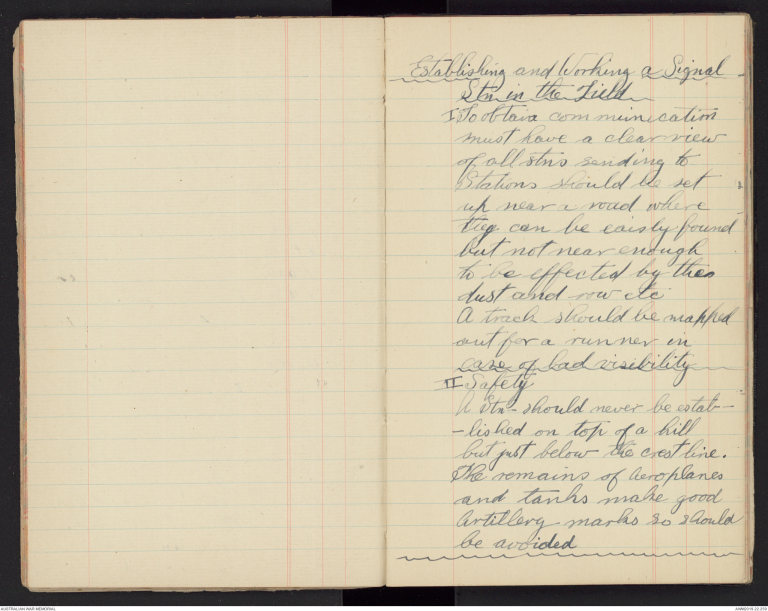 Establishing and Working a Signal
Stn in the Field
I To obtain communication
must have a clear view
of all stns sending to
Stations should be set
up near a road where
they can be eaisly found
but not near enough
to be effected by the
dust and row etc
A track should be mapped
out for a runner in
case of bad visibility
II Safety
A Stn - should never be estab-
-lished on top of a hill
but just below the crest line.
The remains of Aeroplanes
and tanks make good
Artillery marks so should
be avoided
AUSTRALIAN WAR MEMORIAL